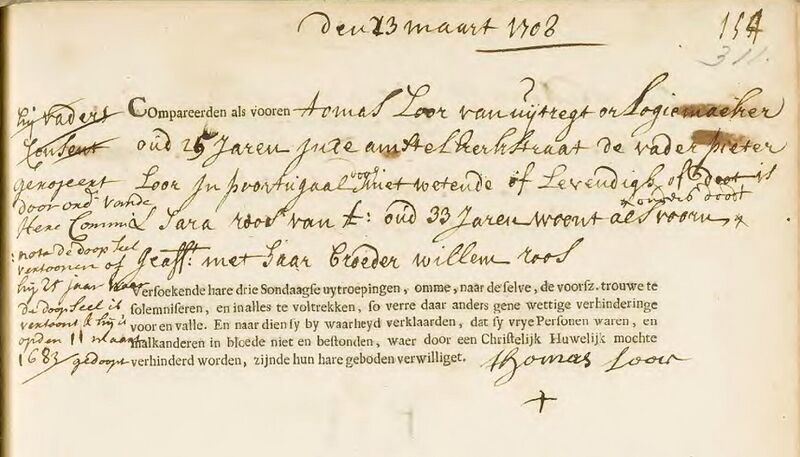 den 23 maart 1708
154
311.
Compareerden als vooren tomas Loor van uijtregt orLogiemaeker
oud 25 Jaren in de amstelkerkstraat de vader pieter
Loor in poortugaal soo niet wetende of Levendigh of doot is
ouders doot
Sara roos van A: oud 33 Jaren woont als voorn
geasst: met haar broeder willem roos
hij vaders
Consent
genoteert
door ord: van de
Here Commis
nota de doop seel
vertoonen of
hij 25 jaar
de doop seel is
vertoont & hij is
op den 11 maart
1683 gedoopt
Versoekende hare drie Sondaagse uytroepingen, omme, naar de selve, de voorsz. trouwe te
solemniseren, en in alles te voltrekken, so verre daar anders gene wettige verhinderinge
voor en valle. En naar dien sy by waarheyd verklaarden, dat sy vrye Personen waren, en
malkanderen in bloede niet en bestonden, waer door een Christelijk Huwelijk mochte
verhinderd worden, zijnde hun hare geboden verwilliget.
thomas Loor